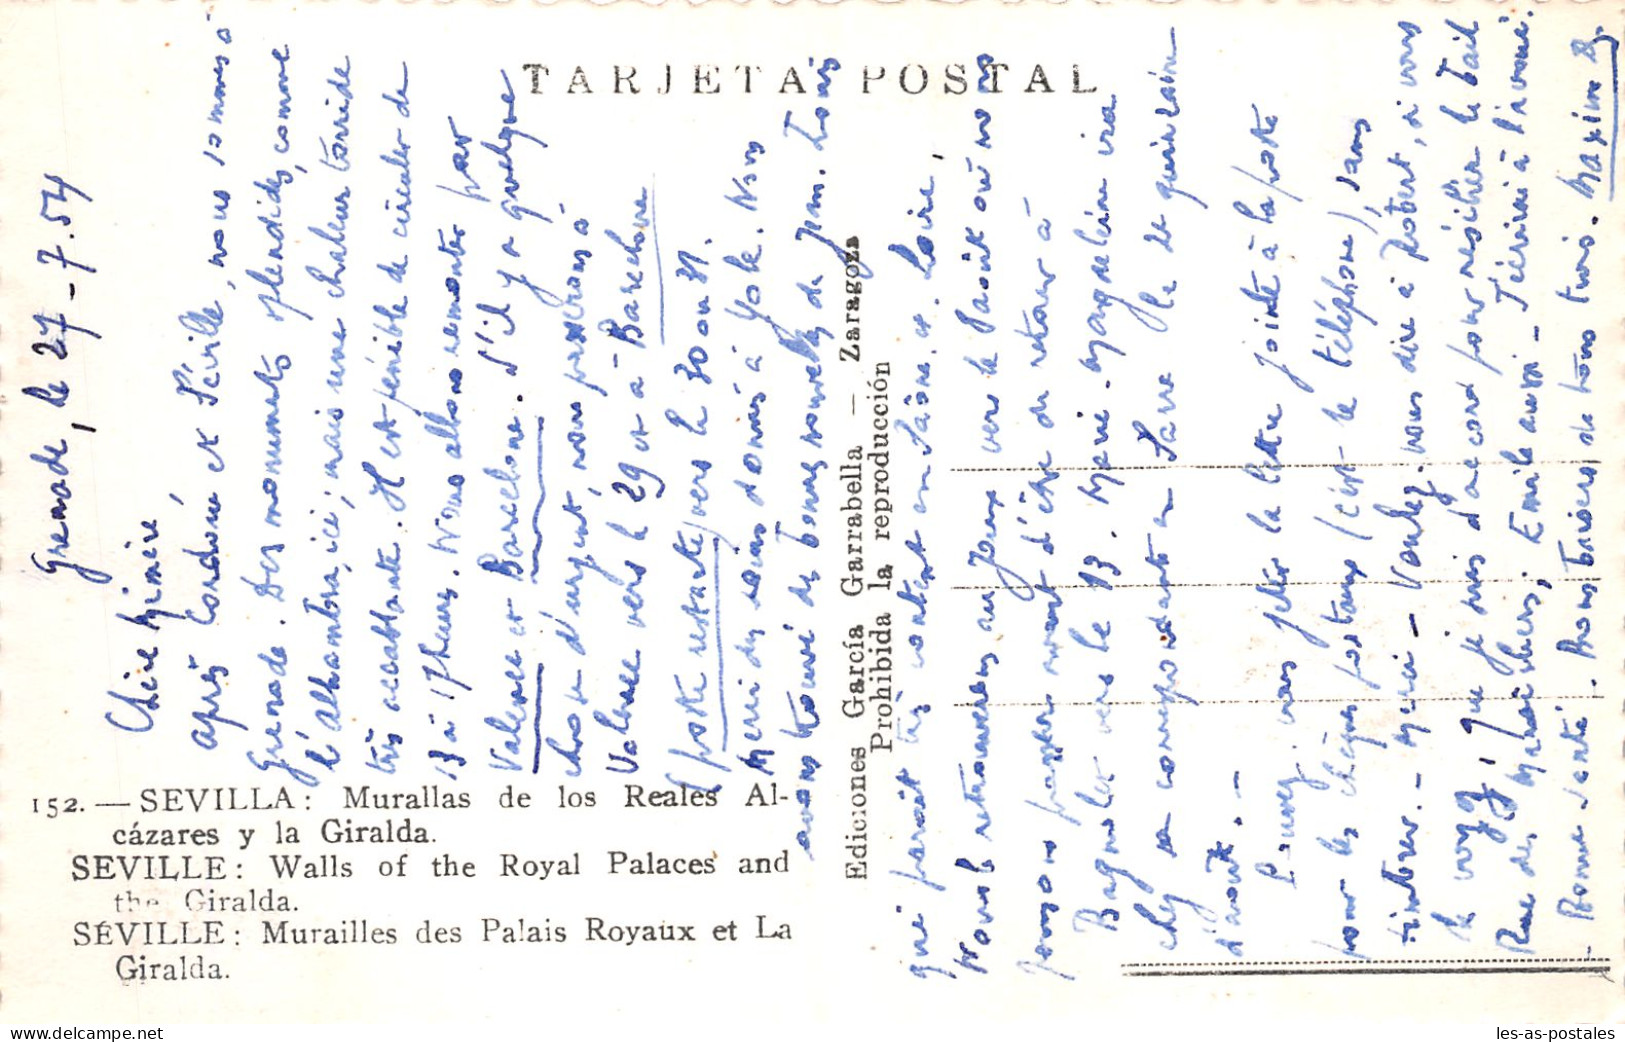 TARJETA POSTAL
Grenade, le 27-7.54
Chère Mémère
après Cordoue et Séville, nous sommes à
Grenade. Des monuments splendides, comme
l'alhambra, ici; mais une chaleur torride
très accablante. Il est pénible de circuler de
13 à 17 heures. Nous allons remonter par
Valence et Barcelone. S'il y a quelque
chose d'urgent, nous passerons à
Valence vers le 29 et à Barcelone
(poste restante) vers le 30 ou 31.
Merci des soins donnés à Yole. Nous
avons trouvé de bonnes nouvelles de Jean-Louis
qui paraît très content en Saône et Loire.
Nous le retrouverons au Joux vers le 5 août où nous
pensons passer avant d'être de retour à
Bagnolet vers le 13. Marie-Magdeleine ira
chez sa correspondante en Sarre la 2e quinzaine
d'août. -
Pouvez-vous jeter la lettre jointe à la poste
pour les chèques postaux (c'est le téléphone), sans
timbrer. - Merci - Voulez-vous dire à Robert, si vous
le voyez, que je suis d'accord pour résilier le bail
Rue des Maraîchers; Emile aussi - J'écrirai à l'avoué.
- Bonne santé. Bons baisers de tous trois. Maxime R.
152. — SEVILLA: Murallas de los Reales Al-
cázares y la Giralda.
SEVILLE: Walls of the Royal Palaces and
the Giralda.
SÉVILLE: Murailles des Palais Royaux et La
Giralda.
Ediciones García Garrabella — Zaragoza
Prohibida la reproducción
www.delcampe.net
les-as-postales